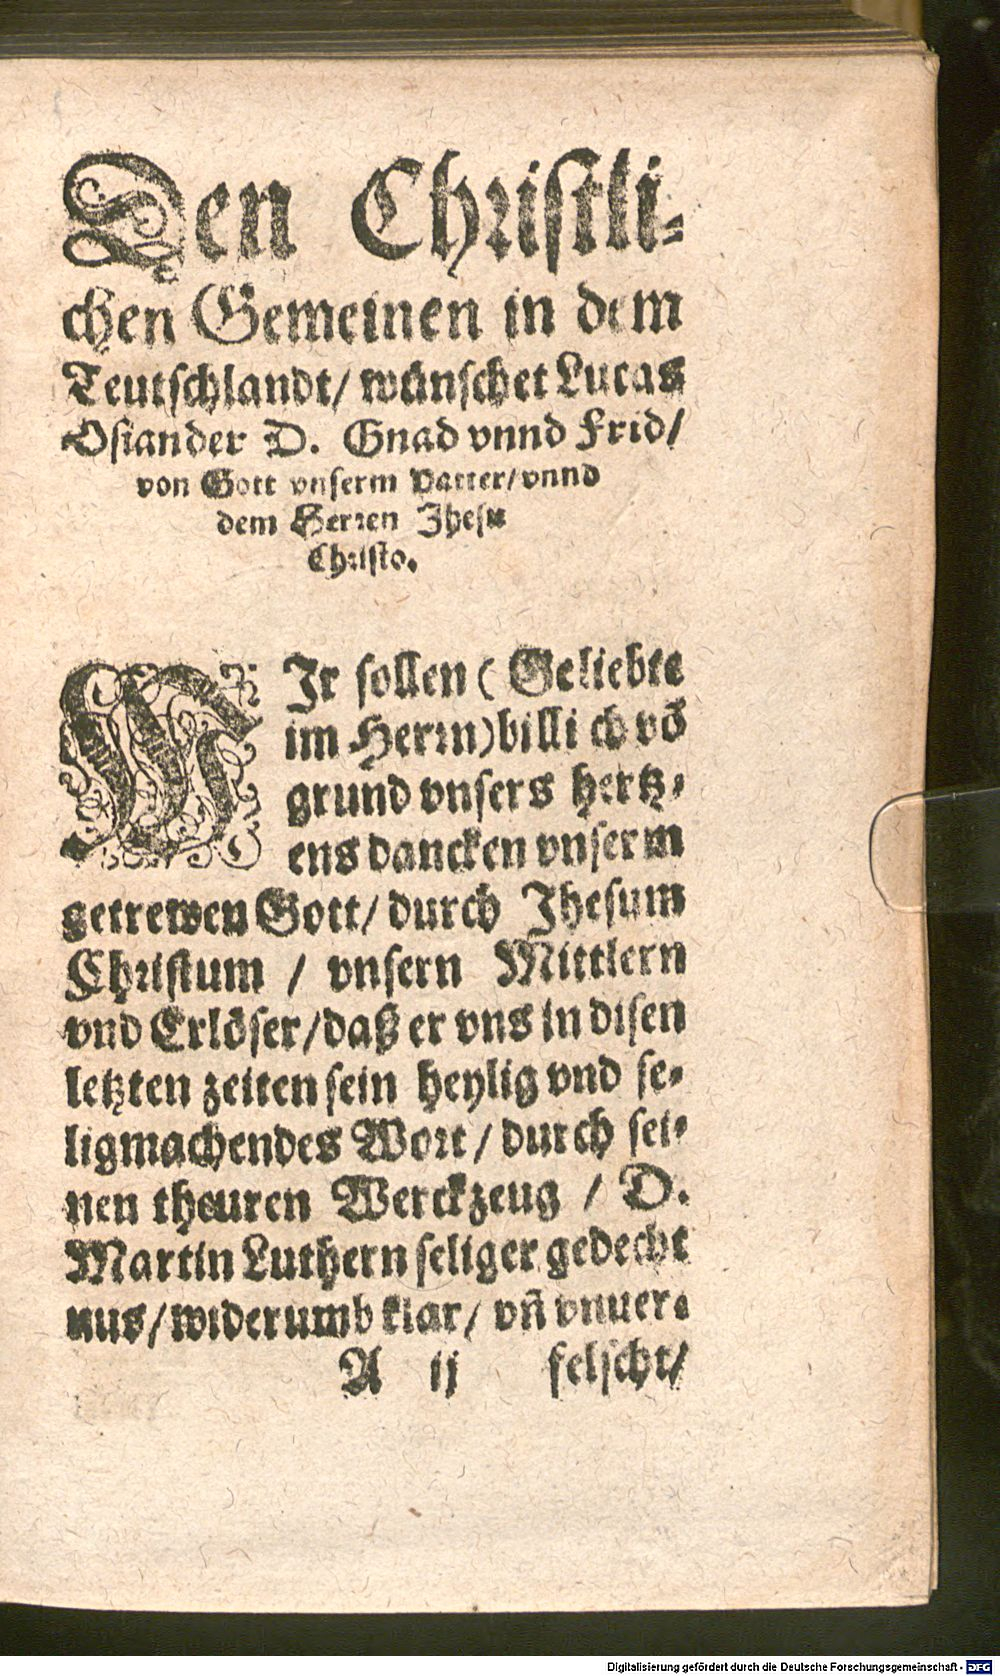 Den Christli-
chen Gemeinen in dem
Teutschlandt/ wünschet Lucas
Osiander D. Gnad vnnd Frid/
von Gott vnserm Vatter/ vnnd
dem Herren Jhesu
Christo.
WJr sollen (Geliebte
im Herrn) billich võ
grund vnsers hertz-
ens dancken vnserm
getrewen Gott/ durch Jhesum
Christum / vnsern Mittlern
vnd Erlöser/ daß er vns in disen
letzten zeiten sein heylig vnd se-
ligmachendes Wort/ durch sei-
nen theuren Werckzeug / D.
Martin Luthern seliger gedecht
nus/ widerumb klar/ vñ vnuer-
A ij felscht/
Digitalisierung gefördert durch die Deutsche Forschungsgemeinschaft - DFG